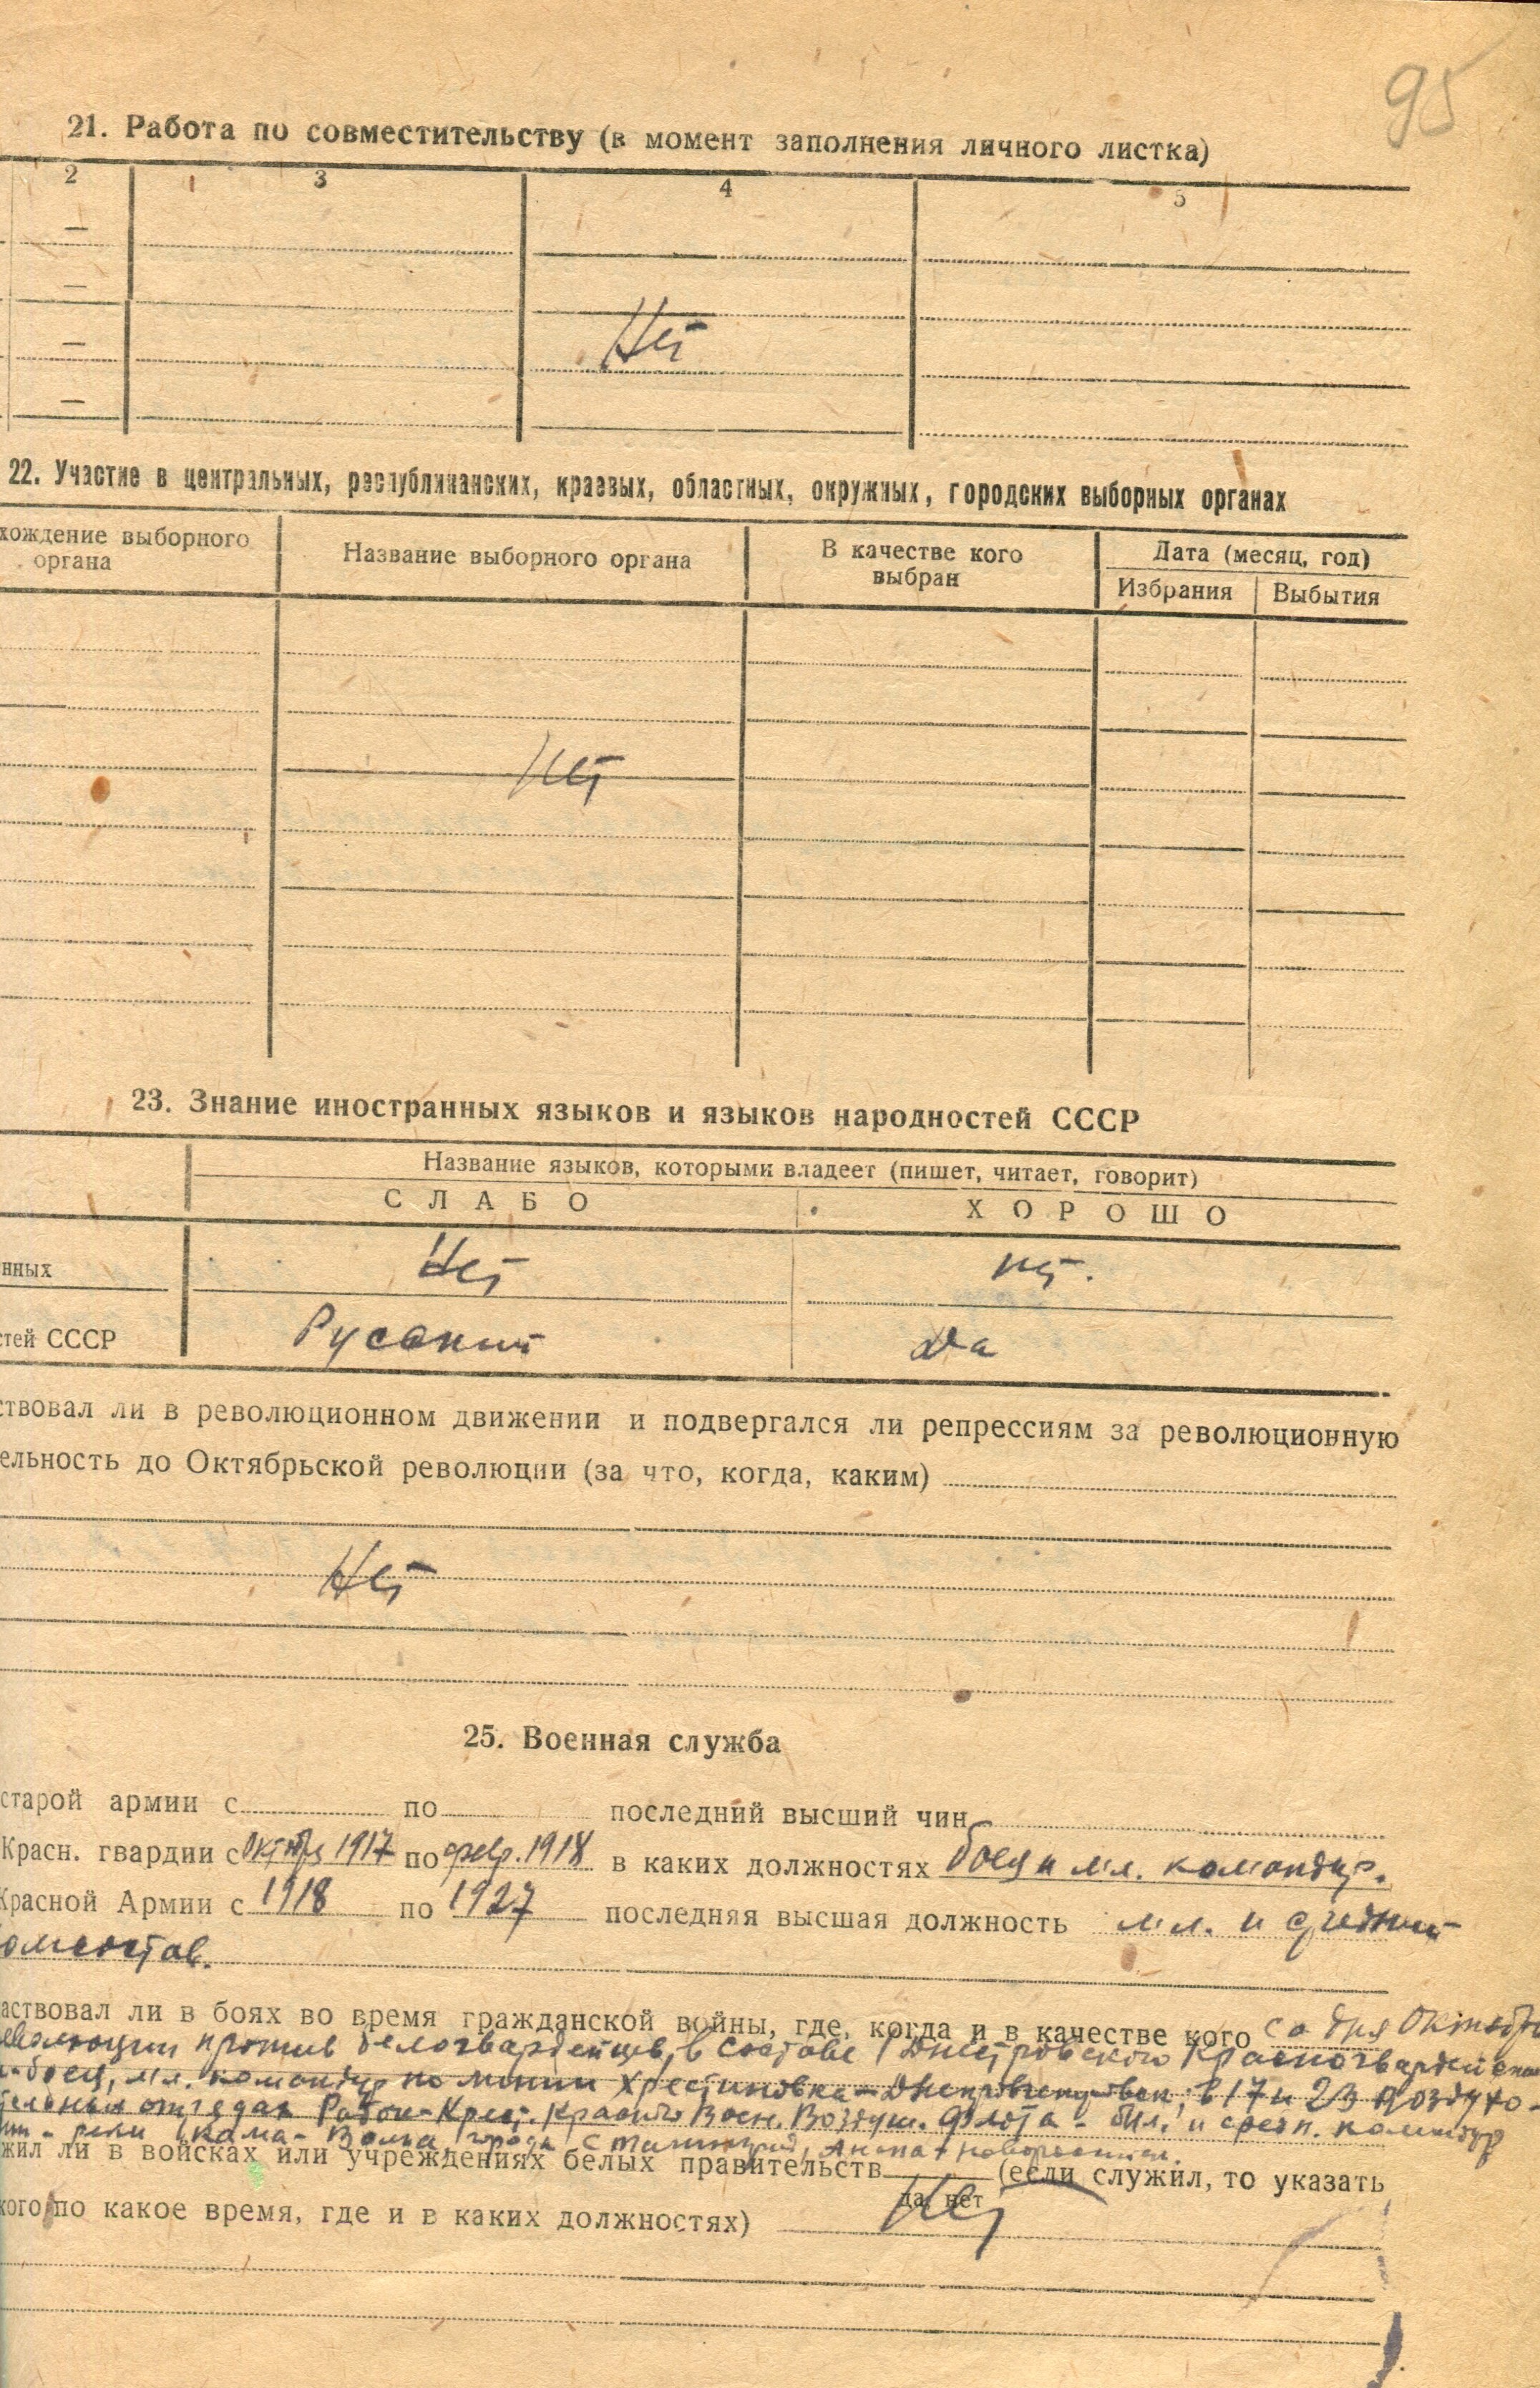 95
21. Работа по совместительству (в момент заполнения личного листка)
2 3 4 5
—
—
Нет
—
—
22. Участие в центральных, республиканских, краевых, областных, окружных, городских выборных органах
хождение выборного органа
Название выборного органа
В качестве кого выбран
Дата (месяц, год)
Избрания Выбытия
Нет
23. Знание иностранных языков и языков народностей СССР
Название языков, которыми владеет (пишет, читает, говорит)
СЛАБО ХОРОШО
нных Нет нет.
стей СССР Русский Да
ствовал ли в революционном движении и подвергался ли репрессиям за революционную
ельность до Октябрьской революции (за что, когда, каким)
Нет
25. Военная служба
старой армии с по последний высший чин
Красн. гвардии с Октябр 1917 по февр. 1918 в каких должностях боец и мл. командир.
Красной Армии с 1918 по 1927 последняя высшая должность мл. и средний
омсостав.
аствовал ли в боях во время гражданской войны, где, когда и в качестве кого с о дня Октябр
еволюции против белогвардейцев, в составе 1 Днестровского Красногвардейск
боец, мл. командир по линии Христиновка — Днепропетровск; в 17 и 23 воздухо-
тельных отрядах Рабоч-Крест. Красного Воен. Воздуш. Флота - был и средн. командир
реки Кама - Волга, города Сталинград, Анапа + Новороссийск.
жил ли в войсках или учреждениях белых правительств (если служил, то указать
да, нет
кого по какое время, где и в каких должностях) Нет